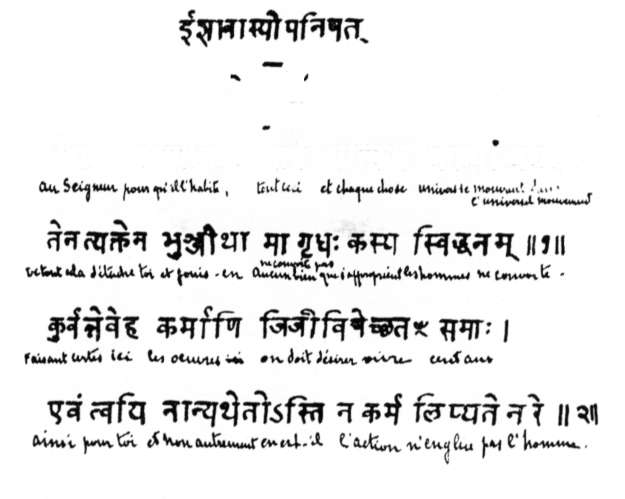 ईशावास्योपनिषत्
au Seigneur pour qu'il l'habite, tout ceci et chaque chose univers se mouvant dans
l'universel mouvement
तेन त्यक्तेन भुञ्जीथा मा गृधः कस्य स्विद्धनम् ॥१॥
ne convoite pas
de tout cela détache toi et jouis-en Aucun bien que s'approprient les hommes ne convoite.
कुर्वन्नेवेह कर्माणि जिजीविषेच्छतꣳ समाः।
Faisant certes ici les oeuvres ici on doit désirer vivre cent ans
एवं त्वयि नान्यथेतोऽस्ति न कर्म लिप्यते नरे ॥२॥
ainsi pour toi et non autrement en est-il l'action n'englue pas l'homme.